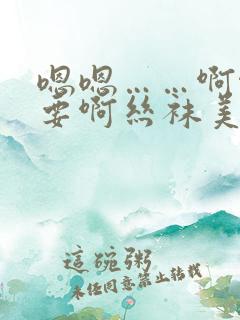 嗯嗯……啊
要啊丝袜美
這碗粥
未经同意禁止转载